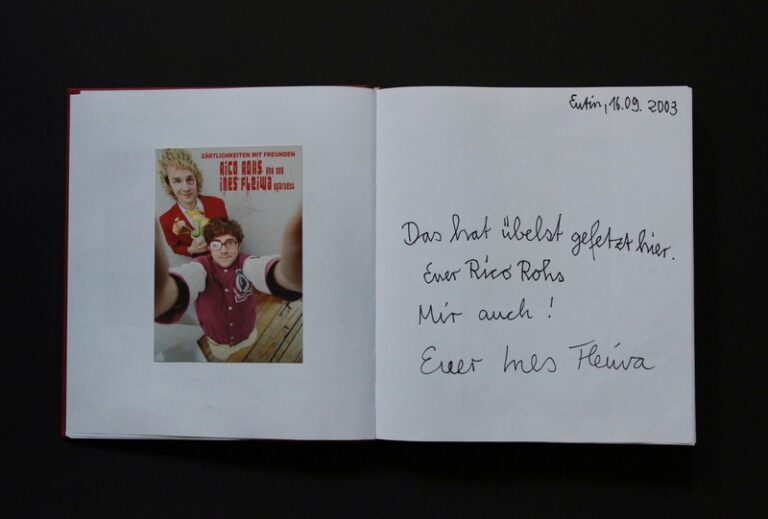 ZÄRTLICHKEITEN MIT FREUNDEN
RICO ROHS und das
INES FLEIWA quartett
Eutin, 16.09. 2003
Das hat übelst gefetzt hier.
Euer Rico Rohs
Mir auch!
Euer Ines Fleiwa